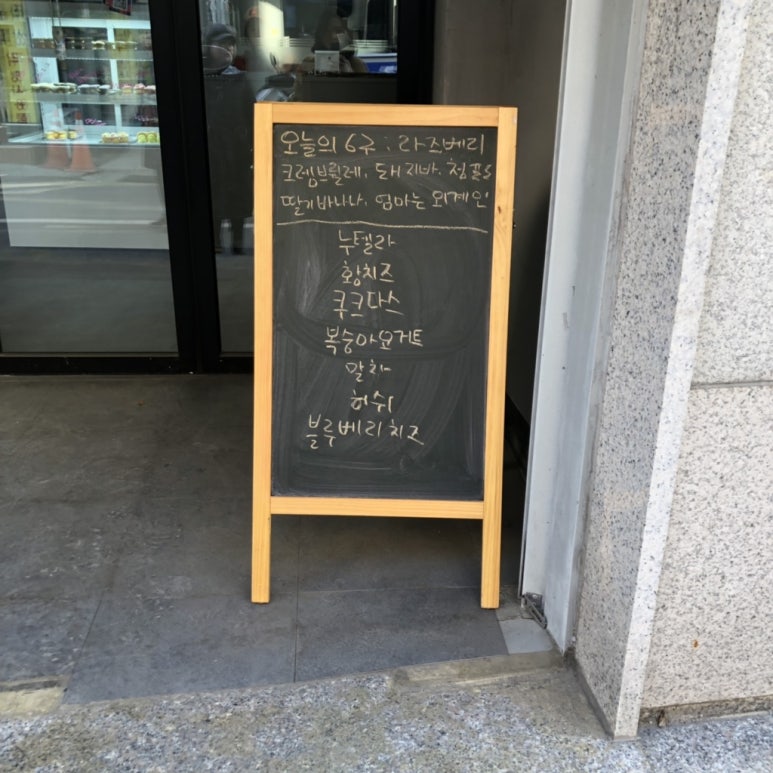 오늘의 6구 : 라즈베리
크렘브륄레, 돼지바, 청포도
딸기바나나, 엄마는 외계인
누텔라
황치즈
쿠크다스
복숭아요거트
말차
허쉬
블루베리치즈